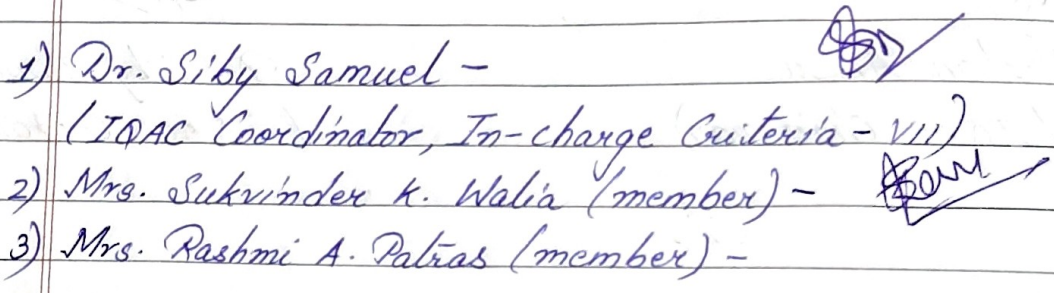 1) Dr. Siby Samuel -
(IQAC Coordinator, In-charge Criteria - VII)
2) Mrs. Sukvinder K. Walia (member) -
3) Mrs. Rashmi A. Patras (member) -